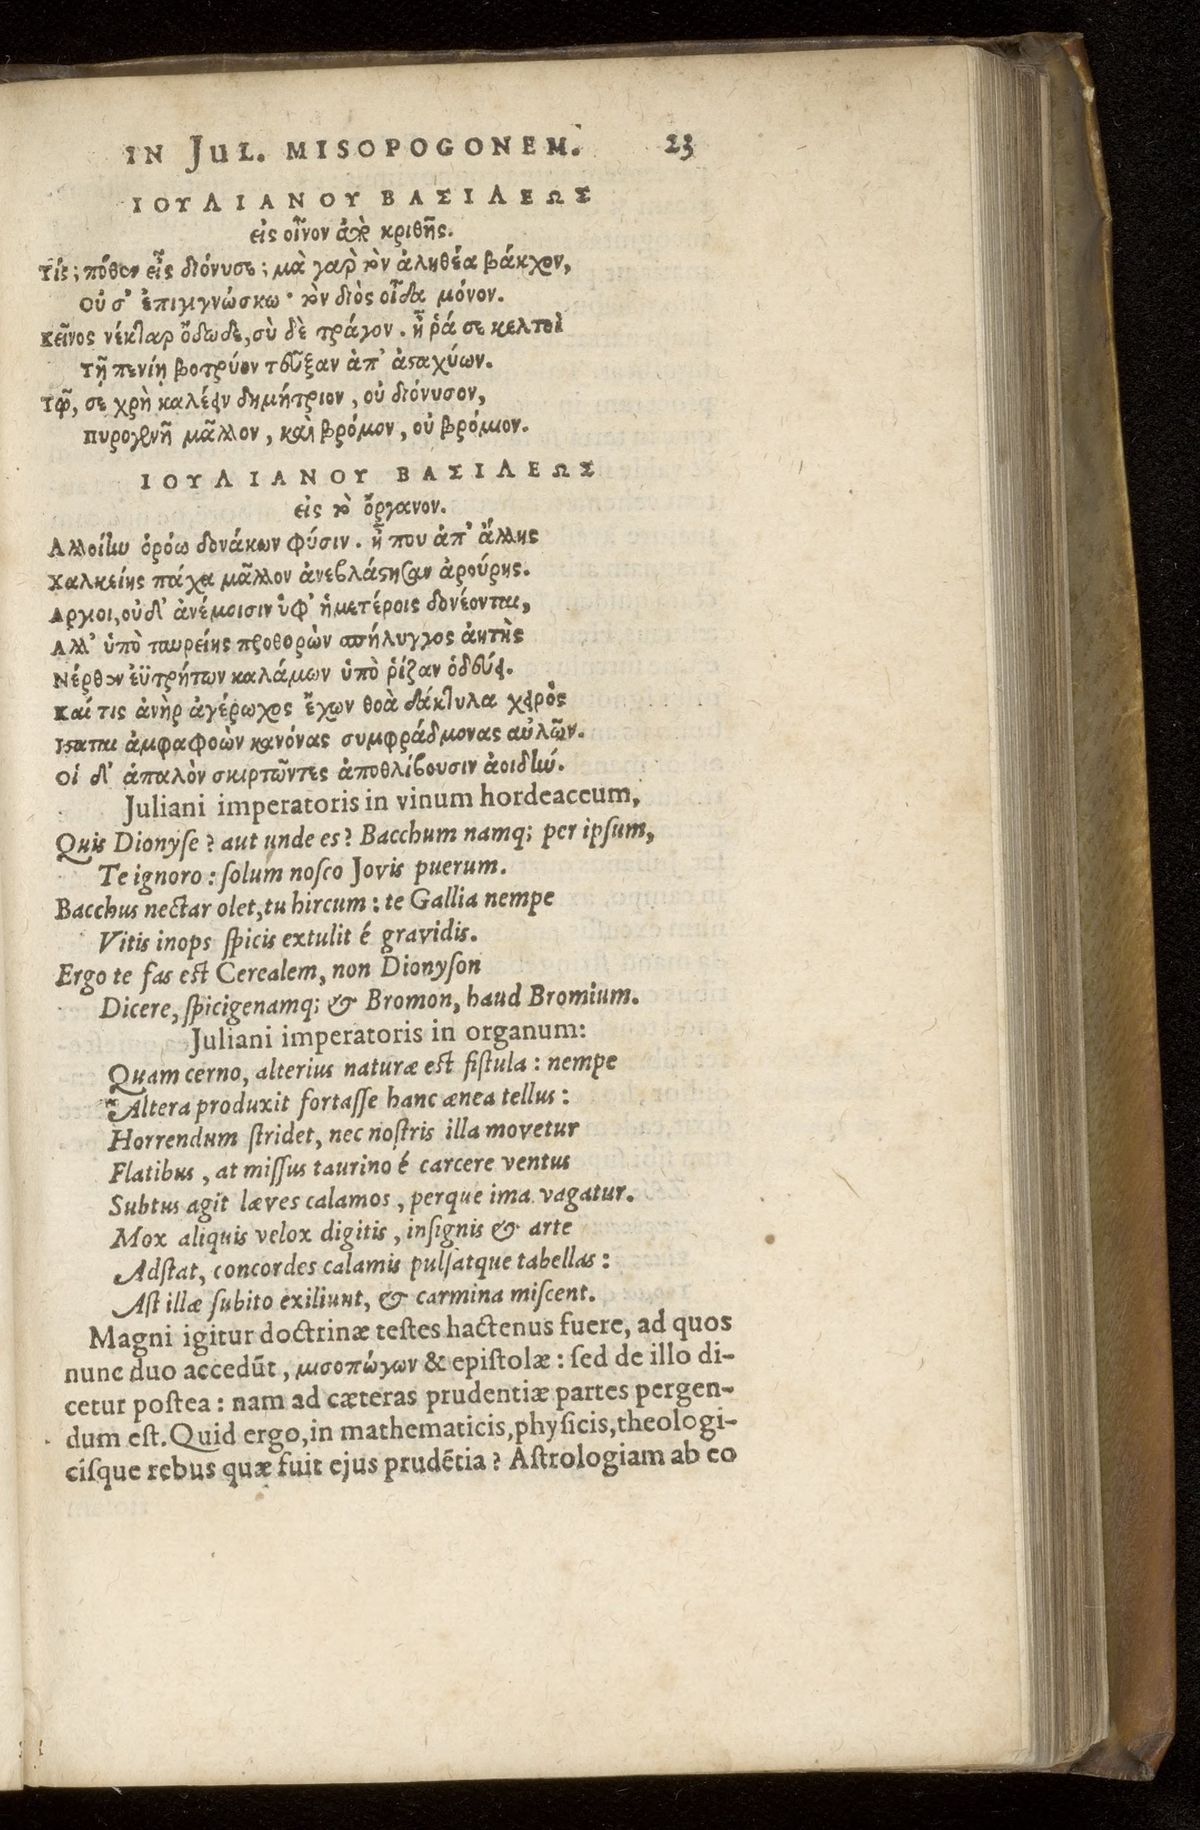 IN JUL. MISOPOGONEM. 23
ΙΟΥΛΙΑΝΟΥ ΒΑΣΙΛΕΩΣ
εἰς οἶνον ἀπὸ κριθῆς.
Τίς; πόθεν εἶς διόνυσε; μὰ γὰρ τὸν ἀληθέα βάκχον,
Οὔ σ' ἐπιγιγνώσκω· τὸν διὸς οἶδα μόνον.
Κεῖνος νέκταρ ὄδωδε, σὺ δὲ τράγον. ἦ ῥά σε κελτοὶ
Τῇ πενίῃ βοτρύων τεῦξαν ἀπ' ἀσταχύων.
Τῷ, σε χρὴ καλέειν δημήτριον, οὐ διόνυσον,
πυρογενῆ μᾶλλον, καὶ βρόμον, οὐ βρόμιον.
ΙΟΥΛΙΑΝΟΥ ΒΑΣΙΛΕΩΣ
εἰς τὸ ὄργανον.
Αλλοίην ὁρόω δονάκων φύσιν. ἦ που ἀπ' ἄλλης
Χαλκείης τάχα μᾶλλον ἀνεβλάστησαν ἀρούρης.
Αργιοι, οὐδ' ἀνέμοισιν ὑφ' ἡμετέροις δονέονται,
Αλλ' ὑπὸ ταυρείης προθορὼν σπήλυγγος ἀητὴς
Νέρθεν ἐϋτρήτων καλάμων ὑπὸ ῥίζαν ὁδεύει.
Καί τις ἀνὴρ ἀγέρωχος ἔχων θοὰ δάκτυλα χειρὸς
Ισταται ἀμφαφοὼν κανόνας συμφράδμονας αὐλῶν.
Οἱ δ' ἁπαλὸν σκιρτῶντες ἀποθλίβουσιν ἀοιδήν.
Juliani imperatoris in vinum hordeaceum,
Quis Dionyse? aut unde es? Bacchum namq; per ipsum,
Te ignoro: solum nosco Jovis puerum.
Bacchus nectar olet, tu hircum: te Gallia nempe
Vitis inops spicis extulit é gravidis.
Ergo te fas est Cerealem, non Dionyson
Dicere, spicigenamq; & Bromon, haud Bromium.
Juliani imperatoris in organum:
Quam cerno, alterius naturæ est fistula: nempe
Altera produxit fortasse hanc ænea tellus:
Horrendum stridet, nec nostris illa movetur
Flatibus, at missus taurino é carcere ventus
Subtus agit læves calamos, perque ima vagatur.
Mox aliquis velox digitis, insignis & arte
Adstat, concordes calamis pulsatque tabellas:
Ast illæ subito exiliunt, & carmina miscent.
Magni igitur doctrinæ testes hactenus fuere, ad quos
nunc duo accedūt, μισοπώγων & epistolæ: sed de illo di-
cetur postea: nam ad cæteras prudentiæ partes pergen-
dum est. Quid ergo, in mathematicis, physicis, theologi-
cisque rebus quæ fuit ejus prudētia? Astrologiam ab eo